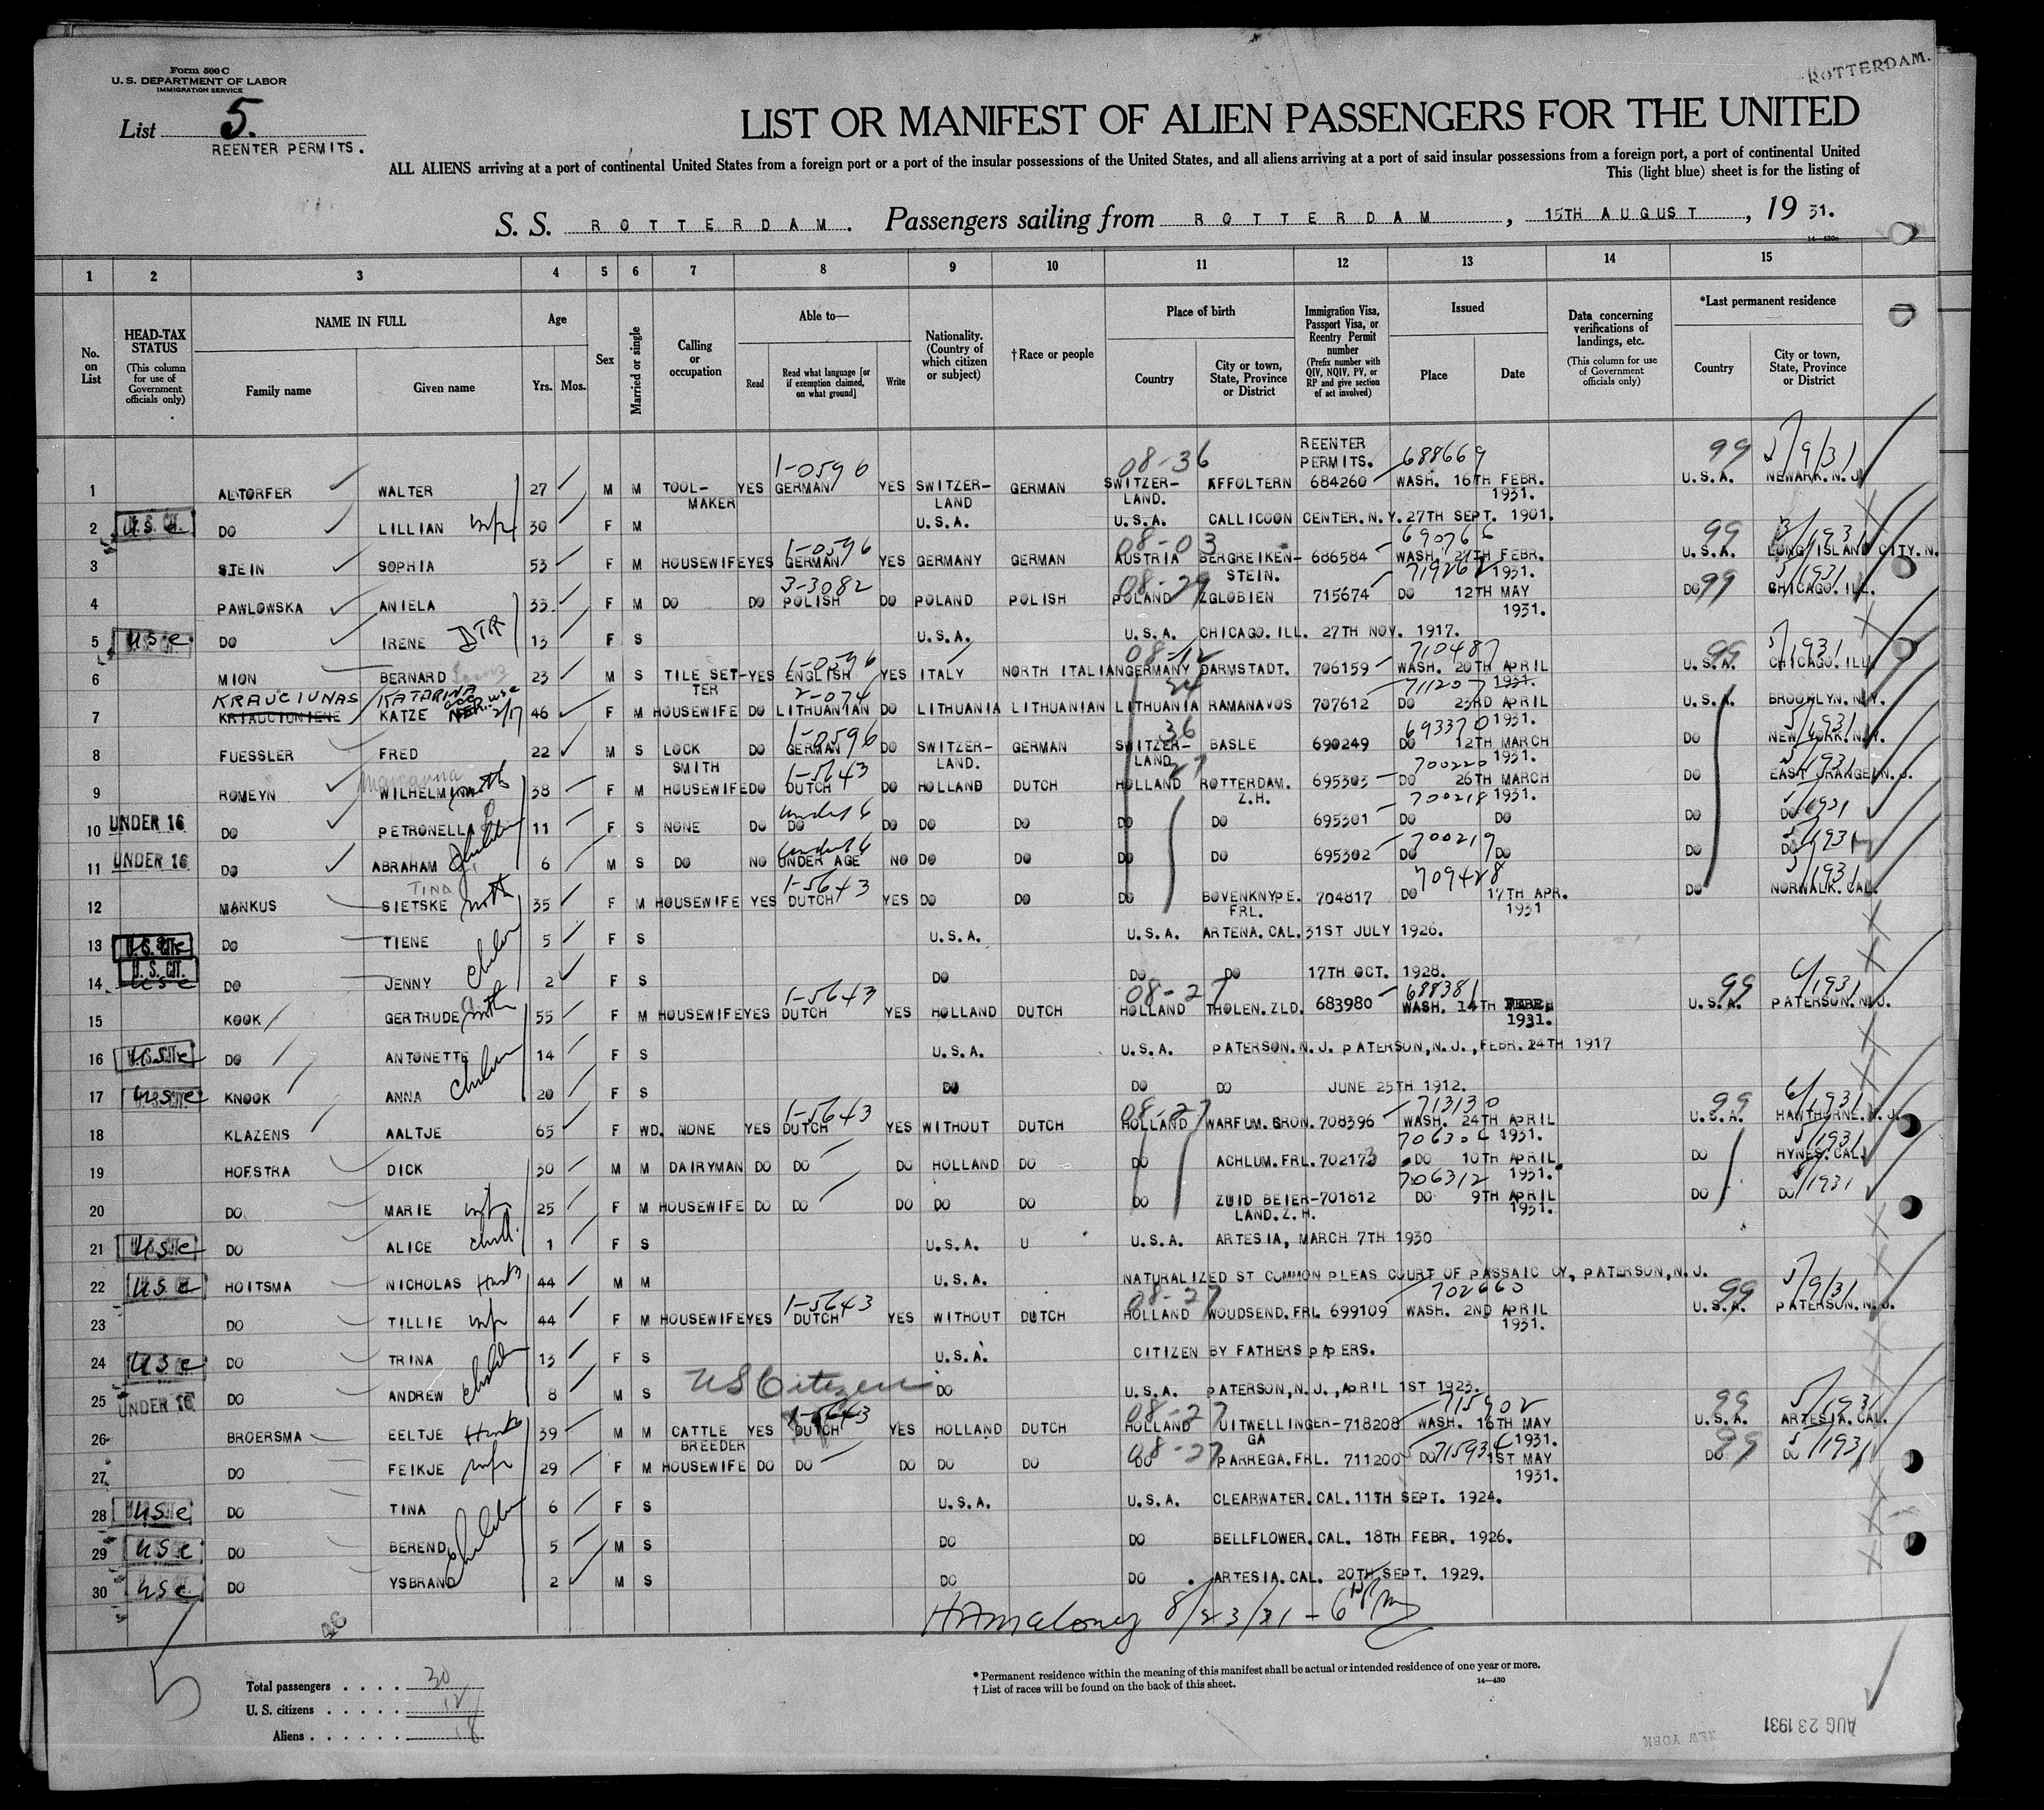 Form 500 C
U. S. DEPARTMENT OF LABOR
IMMIGRATION SERVICE
ROTTERDAM.
List 5.
REENTER PERMITS.
LIST OR MANIFEST OF ALIEN PASSENGERS FOR THE UNITED
ALL ALIENS arriving at a port of continental United States from a foreign port or a port of the insular possessions of the United States, and all aliens arriving at a port of said insular possessions from a foreign port, a port of continental United
This (light blue) sheet is for the listing of
S. S. ROTTERDAM. Passengers sailing from ROTTERDAM, 15TH AUGUST, 19 31.
1 2 3 4 5 6 7 8 9 10 11 12 13 14 15
No. on List
HEAD-TAX STATUS (This column for use of Government officials only)
NAME IN FULL Family name Given name
Age Yrs. Mos.
Sex
Married or single
Calling or occupation
Able to— Read Read what language [or if exemption claimed, on what ground] Write
Nationality. (Country of which citizen or subject)
†Race or people
Place of birth Country City or town, State, Province or District
Immigration Visa, Passport Visa, or Reentry Permit number (Prefix number with QIV, NQIV, PV, or RP and give section of act involved)
Issued Place Date
Data concerning verifications of landings, etc. (This column for use of Government officials only)
*Last permanent residence Country City or town, State, Province or District
REENTER PERMITS. 688669
1-0596 08-36 99 5/9/31
1 ALTORFER WALTER 27 M M TOOL-MAKER YES GERMAN YES SWITZER-LAND GERMAN SWITZER-LAND. AFFOLTERN 684260 WASH. 16TH FEBR. 1931. U.S.A. NEWARK. N. J.
2 U.S. CIT. DO LILLIAN wife 30 F M U.S.A. U.S.A. CALLICOON CENTER. N.Y. 27TH SEPT. 1901.
1-0596 08-03 690766 99
3 STEIN SOPHIA 53 F M HOUSEWIFE YES GERMAN YES GERMANY GERMAN AUSTRIA BERGREIKEN-STEIN. 686584 WASH. 27TH FEBR. 1931. U.S.A. LONG ISLAND CITY. N.
3-3082 08-29 719262 5/1931
4 PAWLOWSKA ANIELA 33 F M DO DO POLISH DO POLAND POLISH POLAND ZGLOBIEN 715674 DO 12TH MAY 1931. DO 99 CHICAGO. ILL.
5 USC DO IRENE DTR 13 F S U.S.A. U.S.A. CHICAGO. ILL. 27TH NOV. 1917.
1-0596 08-12 710487 99 5/1931
6 MION BERNARD Louis 23 M S TILE SET-TER YES ENGLISH YES ITALY NORTH ITALIAN GERMANY DARMSTADT. 706159 WASH. 20TH APRIL 1931. U.S.A. CHICAGO. ILL.
KRAUCIUNAS KATARINA 2-074 24 711207
7 KRIAUCIUNIENE KATZE 46 F M HOUSEWIFE DO LITHUANIAN DO LITHUANIA LITHUANIAN LITHUANIA RAMANAVOS 707612 DO 23RD APRIL 1931. U.S.A. BROOKLYN. N.Y.
1-0596 36 693370 5/1931
8 FUESSLER FRED 22 M S LOCK SMITH DO GERMAN DO SWITZER-LAND. GERMAN SWITZER-LAND BASLE 690249 DO 12TH MARCH 1931. DO NEW YORK. N.Y.
1-5643 27 700220 5/1931
9 ROMEYN WILHELMINA moth 38 F M HOUSEWIFE DO DUTCH DO HOLLAND DUTCH HOLLAND ROTTERDAM. Z.H. 695303 DO 26TH MARCH 1931. DO EAST ORANGE. N. J.
under 16 700218 5/1931
10 UNDER 16 DO PETRONELLA 11 F S NONE DO DO DO DO DO DO DO 695301 DO DO DO DO
under 16 700219 5/1931
11 UNDER 16 DO ABRAHAM 6 M S DO NO UNDER AGE NO DO DO DO DO 695302 DO DO DO DO
TINA 1-5643 709428 5/1931
12 MANKUS SIETSKE moth 35 F M HOUSEWIFE YES DUTCH YES DO DO DO BOVENKNYPE. FRL. 704817 DO 17TH APR. 1931 DO NORWALK. CAL.
13 U.S. CIT. DO TIENE 5 F S U.S.A. U.S.A. ARTENA. CAL. 31ST JULY 1926.
14 U.S. CIT. DO JENNY 2 F S DO DO DO 17TH OCT. 1928.
1-5643 08-27 688381 99 6/1931
15 KOOK GERTRUDE moth 55 F M HOUSEWIFE YES DUTCH YES HOLLAND DUTCH HOLLAND THOLEN. ZLD. 683980 WASH. 14TH FEBR. 1931. U.S.A. PATERSON. N. J.
16 USC DO ANTONETTE 14 F S U.S.A. U.S.A. PATERSON. N. J. PATERSON, N. J., FEBR. 24TH 1917
17 USC KNOOK ANNA 20 F S DO DO DO JUNE 25TH 1912.
1-5643 08-27 713130 99 6/1931
18 KLAZENS AALTJE 65 F WD. NONE YES DUTCH YES WITHOUT DUTCH HOLLAND WARFUM. GRON. 708396 WASH. 24TH APRIL 1931. U.S.A. HAWTHORNE. N. J.
706304 5/1931
19 HOFSTRA DICK 30 M M DAIRYMAN DO DO DO HOLLAND DO DO ACHLUM. FRL. 702173 DO 10TH APRIL 1931. DO HYNES. CAL.
706312 5/1931
20 DO MARIE wife 25 F M HOUSEWIFE DO DO DO DO DO DO ZUID BEIER-LAND. Z. H. 701812 DO 9TH APRIL 1931. DO DO
21 USC DO ALICE child 1 F S U.S.A. U U.S.A. ARTESIA, MARCH 7TH 1930
22 USC HOITSMA NICHOLAS Husb 44 M M U.S.A. NATURALIZED ST COMMON PLEAS COURT OF PASSAIC CY, PATERSON, N. J.
1-5643 08-27 702660 99 5/9/31
23 DO TILLIE wife 44 F M HOUSEWIFE YES DUTCH YES WITHOUT DUTCH HOLLAND WOUDSEND. FRL 699109 WASH. 2ND APRIL 1931. U.S.A. PATERSON. N. J.
24 USC DO TRINA 13 F S U.S.A. CITIZEN BY FATHERS PAPERS.
25 UNDER 16 DO ANDREW 8 M S US Citizen DO U.S.A. PATERSON, N. J., APRIL 1ST 1923.
1-5643 08-27 715902 99 5/1931
26 BROERSMA EELTJE Husb 39 M M CATTLE BREEDER YES DUTCH YES HOLLAND DUTCH HOLLAND UITWELLINGER-GA 718208 WASH. 16TH MAY 1931. U.S.A. ARTESIA. CAL.
08-27 99 5/1931
27 DO FEIKJE wife 29 F M HOUSEWIFE DO DO DO DO DO DO PARREGA. FRL. 711200 DO 715934 1ST MAY 1931. DO DO
28 USC DO TINA 6 F S U.S.A. U.S.A. CLEARWATER. CAL. 11TH SEPT. 1924.
29 USC DO BEREND 5 M S DO DO BELLFLOWER. CAL. 18TH FEBR. 1926.
30 USC DO YSBRAND 2 M S DO DO ARTESIA. CAL. 20TH SEPT. 1929.
HAMaloney 8/23/31 - 6
Total passengers 30
U. S. citizens 12
Aliens 18
* Permanent residence within the meaning of this manifest shall be actual or intended residence of one year or more.
† List of races will be found on the back of this sheet.
14—430
NEW YORK
AUG 23 1931